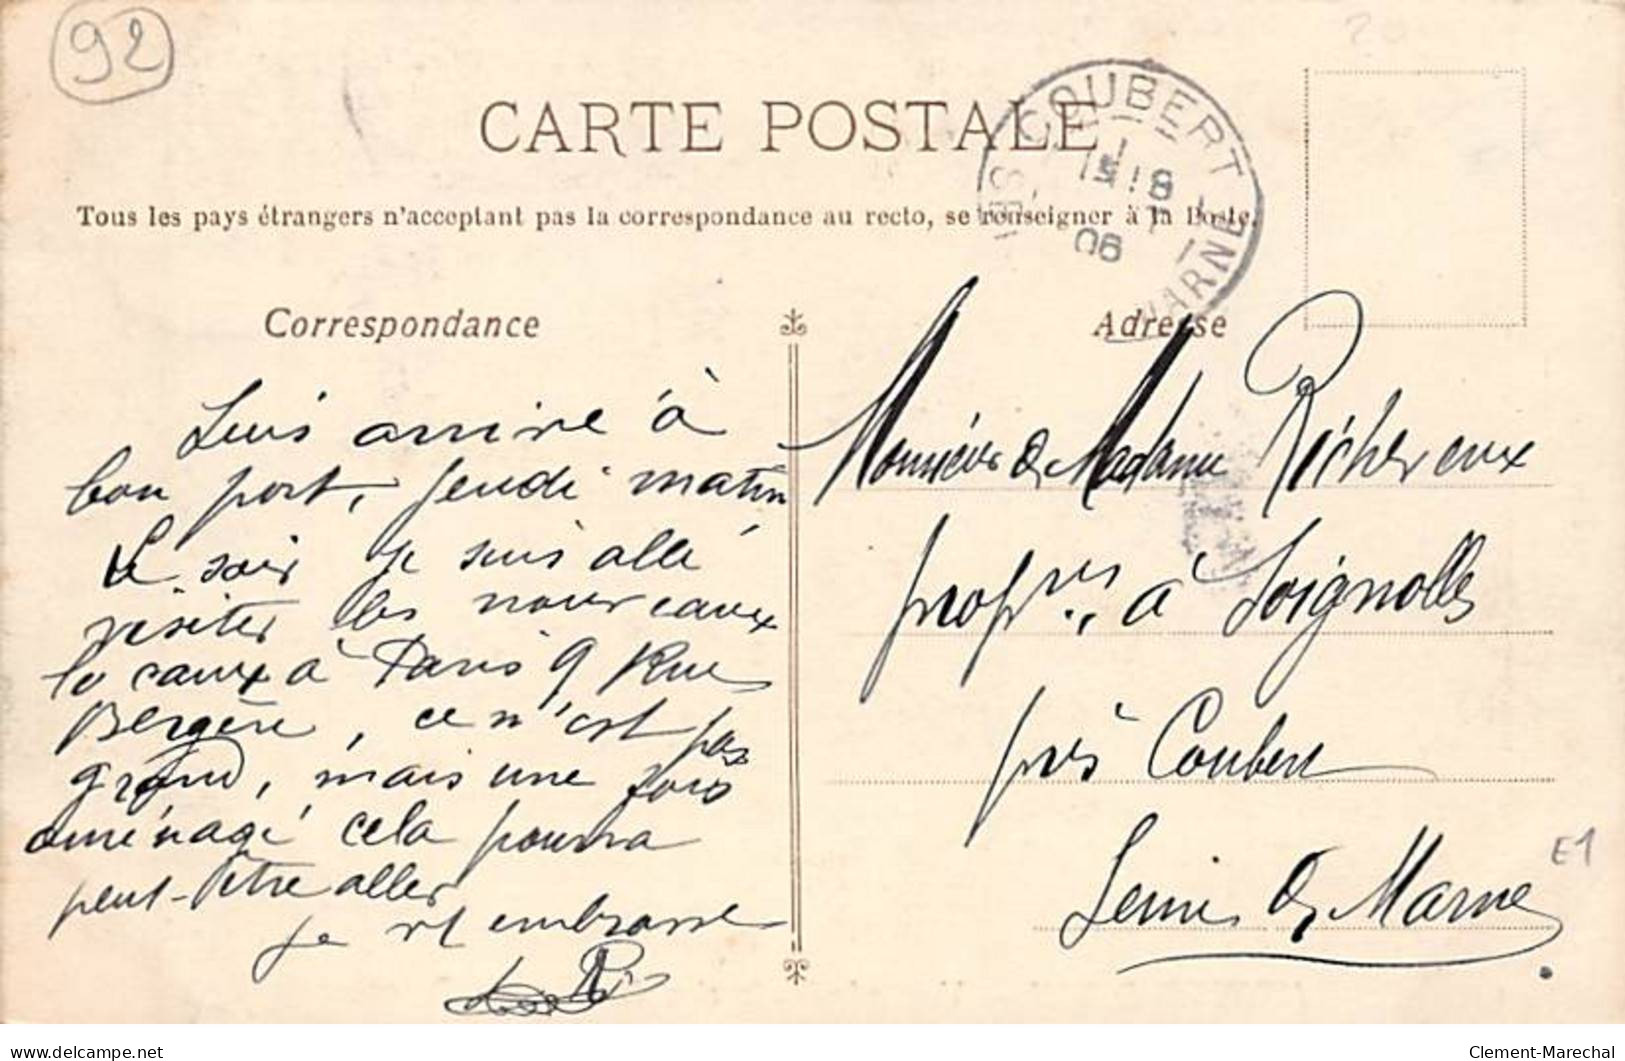 92
CARTE POSTALE
COUBERT
18
06
MARNE
Tous les pays étrangers n'acceptant pas la correspondance au recto, se renseigner à la Poste.
Correspondance
Suis arrivé à
bon port, jeudi matin
Le soir je suis allé
visiter les nouveaux
locaux à Paris 9 Rue
Bergère, ce n'est pas
grand, mais une fois
aménagé cela pourra
peut-être aller
je embrasse
Adresse
Monsieur & Madame Richereux
propres à Soignolles
près Coubert
Seine & Marne
E1
delcampe.net
Clement-Marechal